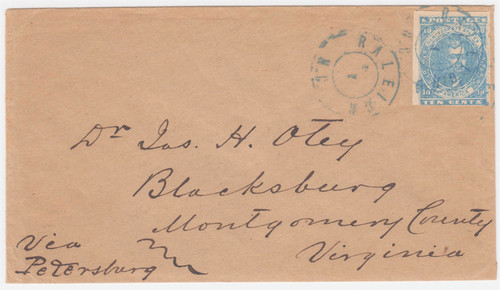 POSTAGE
RALEIGH
N.C.
10 10
TEN CENTS
Dr Jas. H. Otey
Blacksburg
Montgomery County
Virginia
Via
Petersburg